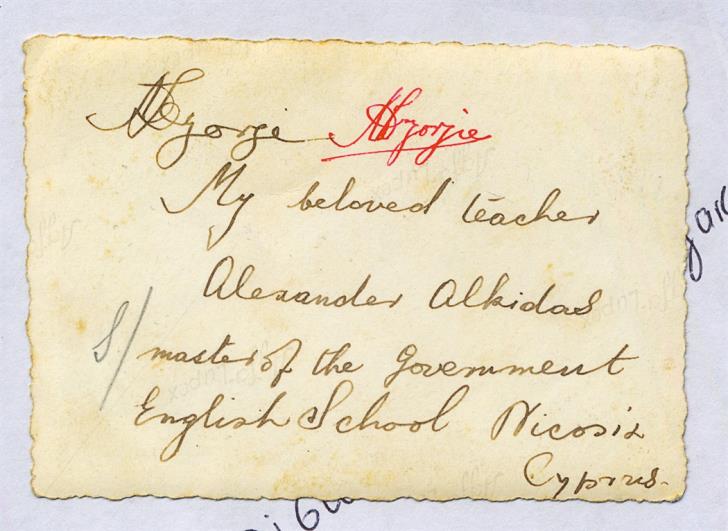 My beloved teacher
Alexander Alkidas
S/
master of the Government
English School Nicosia
Cyprus.